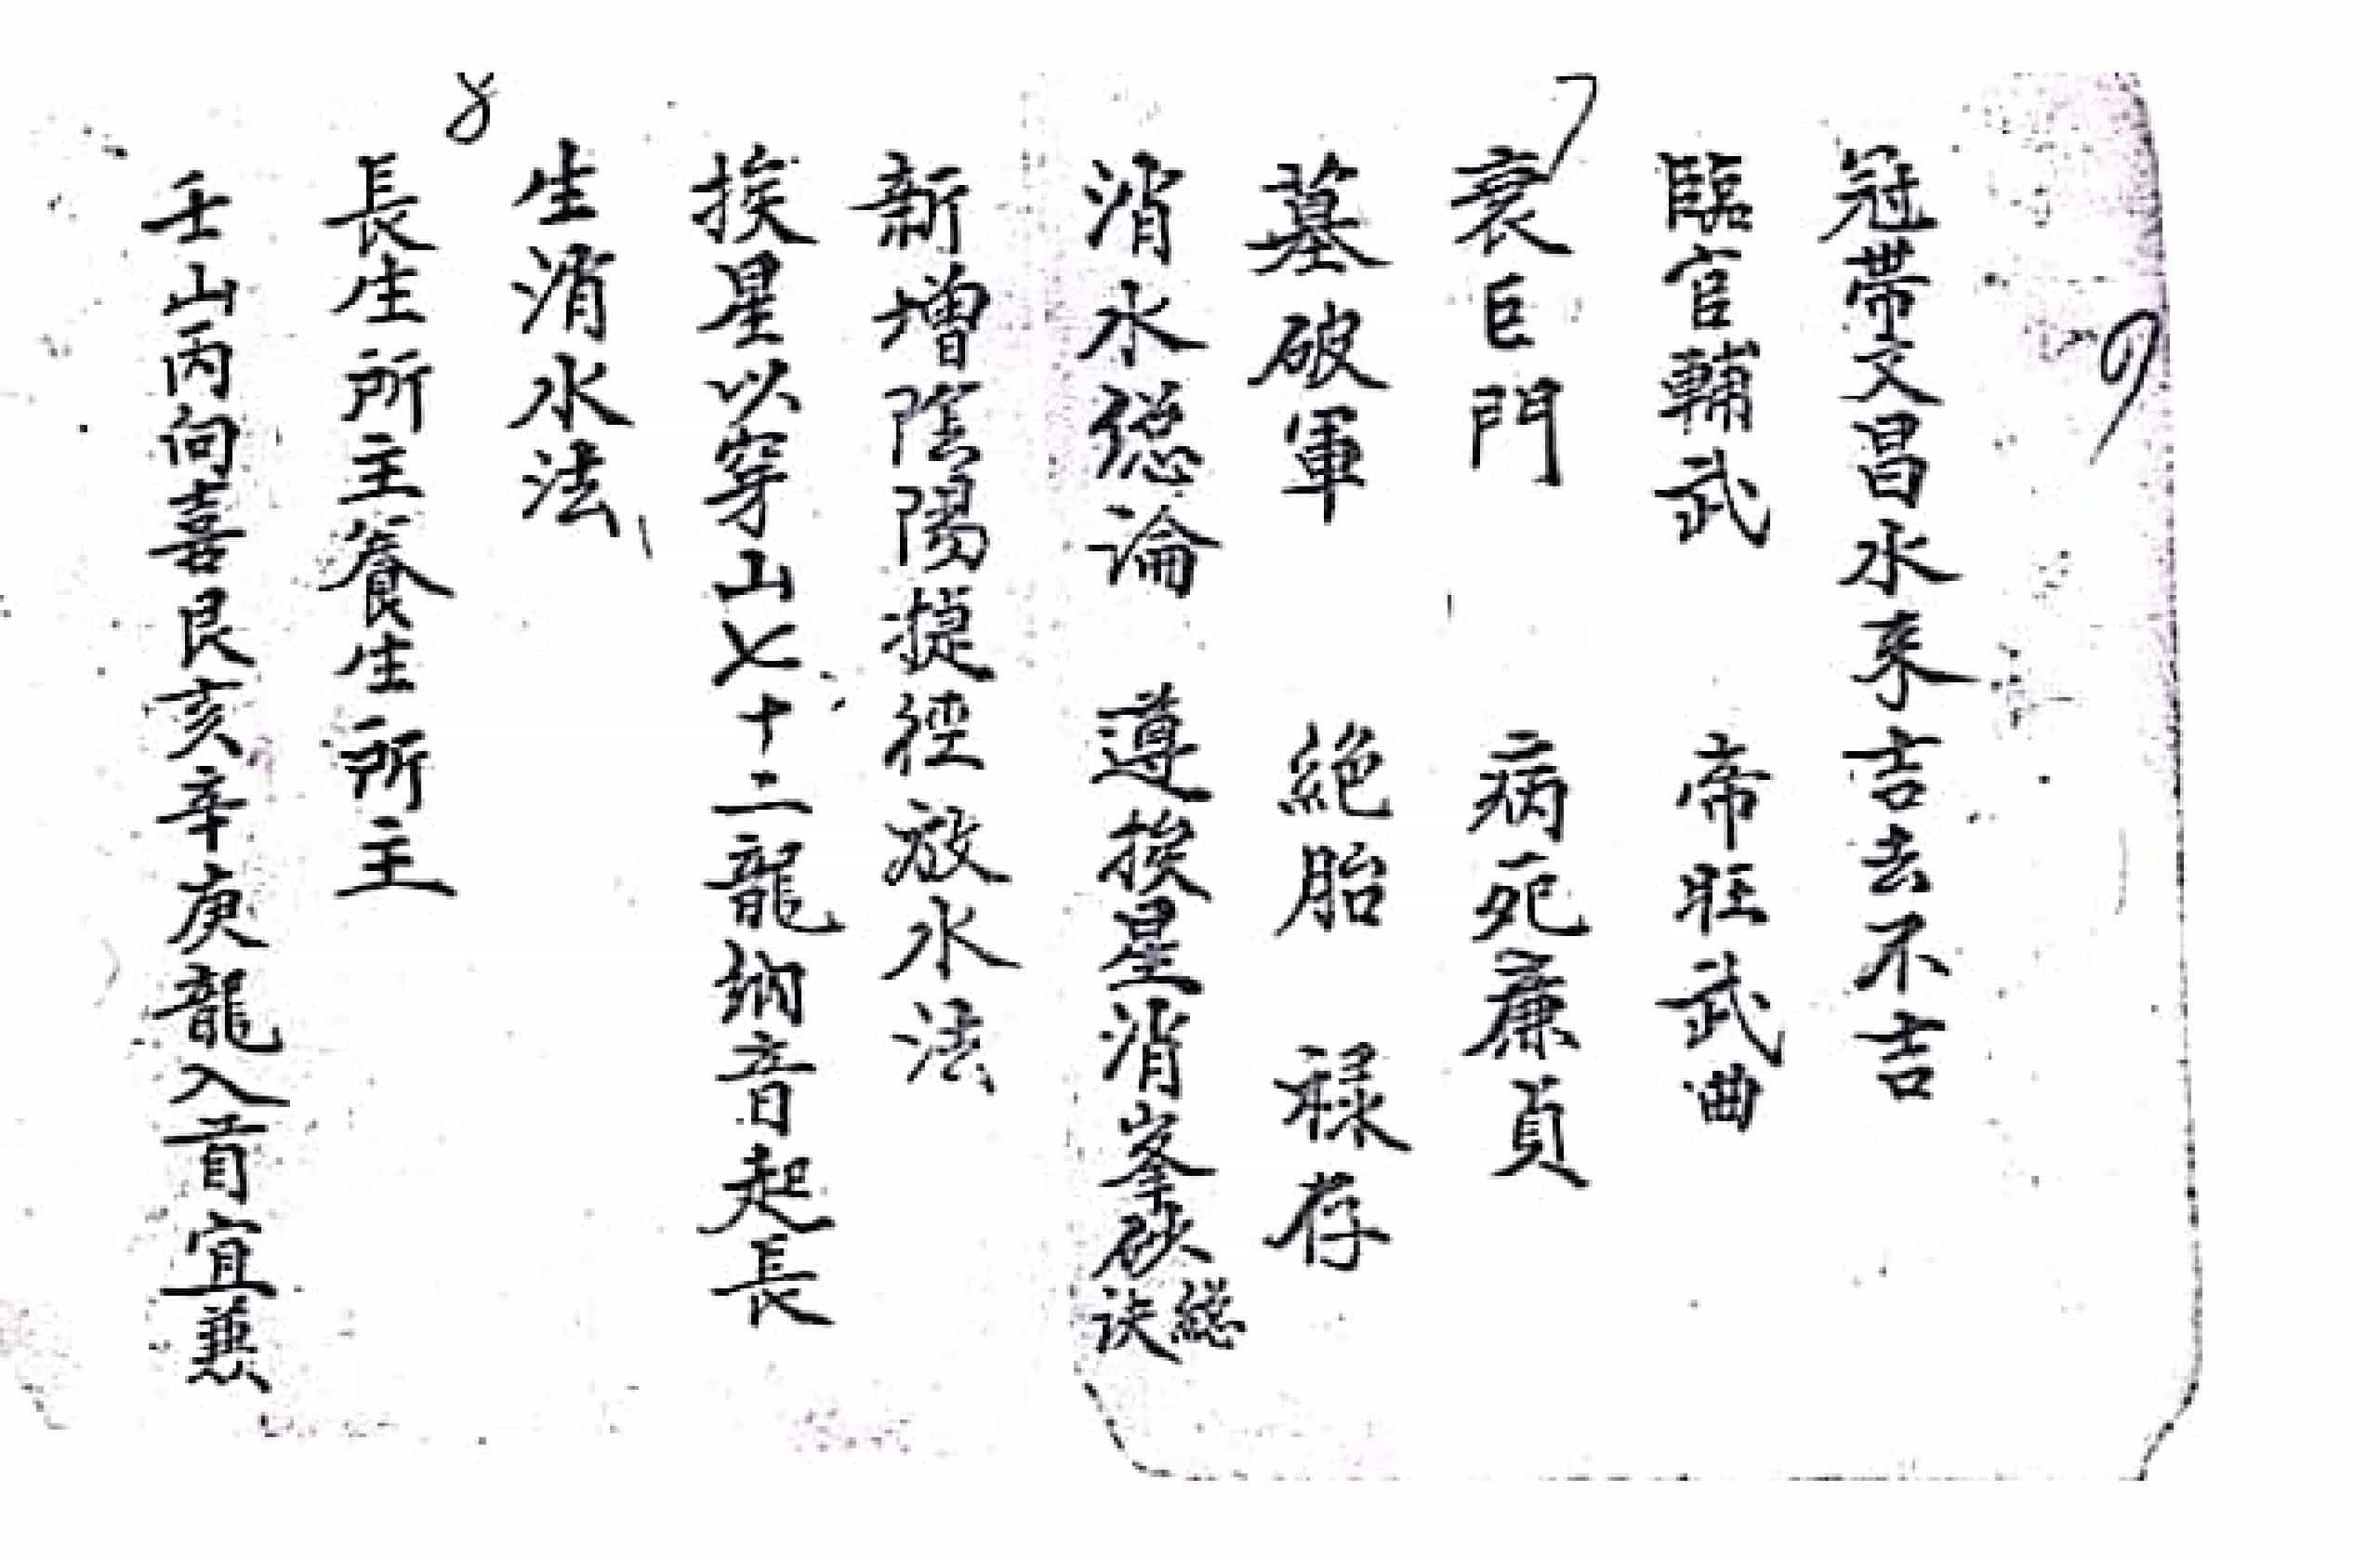 冠帶文昌水来吉去不吉
臨官輔武　帝旺武曲
衰巨門　病死廉貞
墓破軍　絕胎　祿存
消水總論　遵挨星消峯砂總訣
新增陰陽捷徑放水法
挨星以穿山七十二龍納音起長
生消水法
長生所主養生所主
壬山丙向喜艮亥辛庚龍入首宜兼
7
8